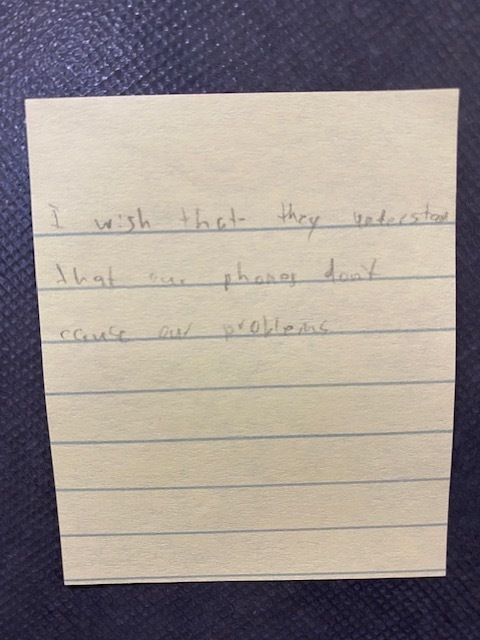 I wish that they understan
that our phones don't
cause our problems